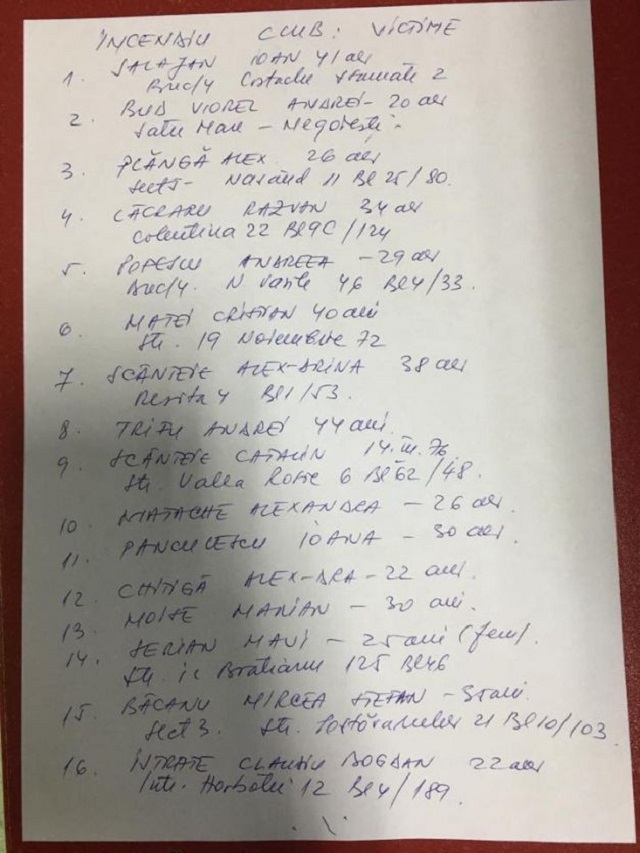 INCENDIU CLUB: VICTIME
1. SALAJAN IOAN 41 ani
Buc/4 Costache Stamate 2
2. BUD VIOREL ANDREI - 20 ani
Satu Mare - Negoiești.
3. PLÂNGĂ ALEX 26 ani
Sect 5 - 11 Bl 25/80.
4. RAZVAN 34 ani
Colentina 22 Bl 9C/124
5. POPESCU ANDREEA - 29 ani
Buc/4. N Vasile 46 Bl 4/33.
6. MATEI CRISTIAN 40 ani
Str. 19 Noiembrie 72
7. SCÂNTEIE ALEX-DRINA 38 ani
Resita 4 Bl 1/53.
8. TRIFU ANDREI 44 ani.
9. SCÂNTEIE CATALIN 14.III.76
Str. Valea Rosie 6 Bl 62/48.
10. MATACHE ALEXANDRA - 26 ani.
11. PANCULESCU IOANA - 30 ani.
12. CHITIGĂ ALEX-DRA - 22 ani.
13. MOISE MARIAN - 30 ani.
14. SERIAN MAVI - 25 ani (fem).
Str. Ic Bratianu 125 Bl 46
15. BĂCANU MIRCEA STEFAN - 35 ani.
Sect 3. Str. 21 Bl 10/103.
16. CLAUDIU BOGDAN 22 ani
Intr. Horbotei 12 Bl 4/189.